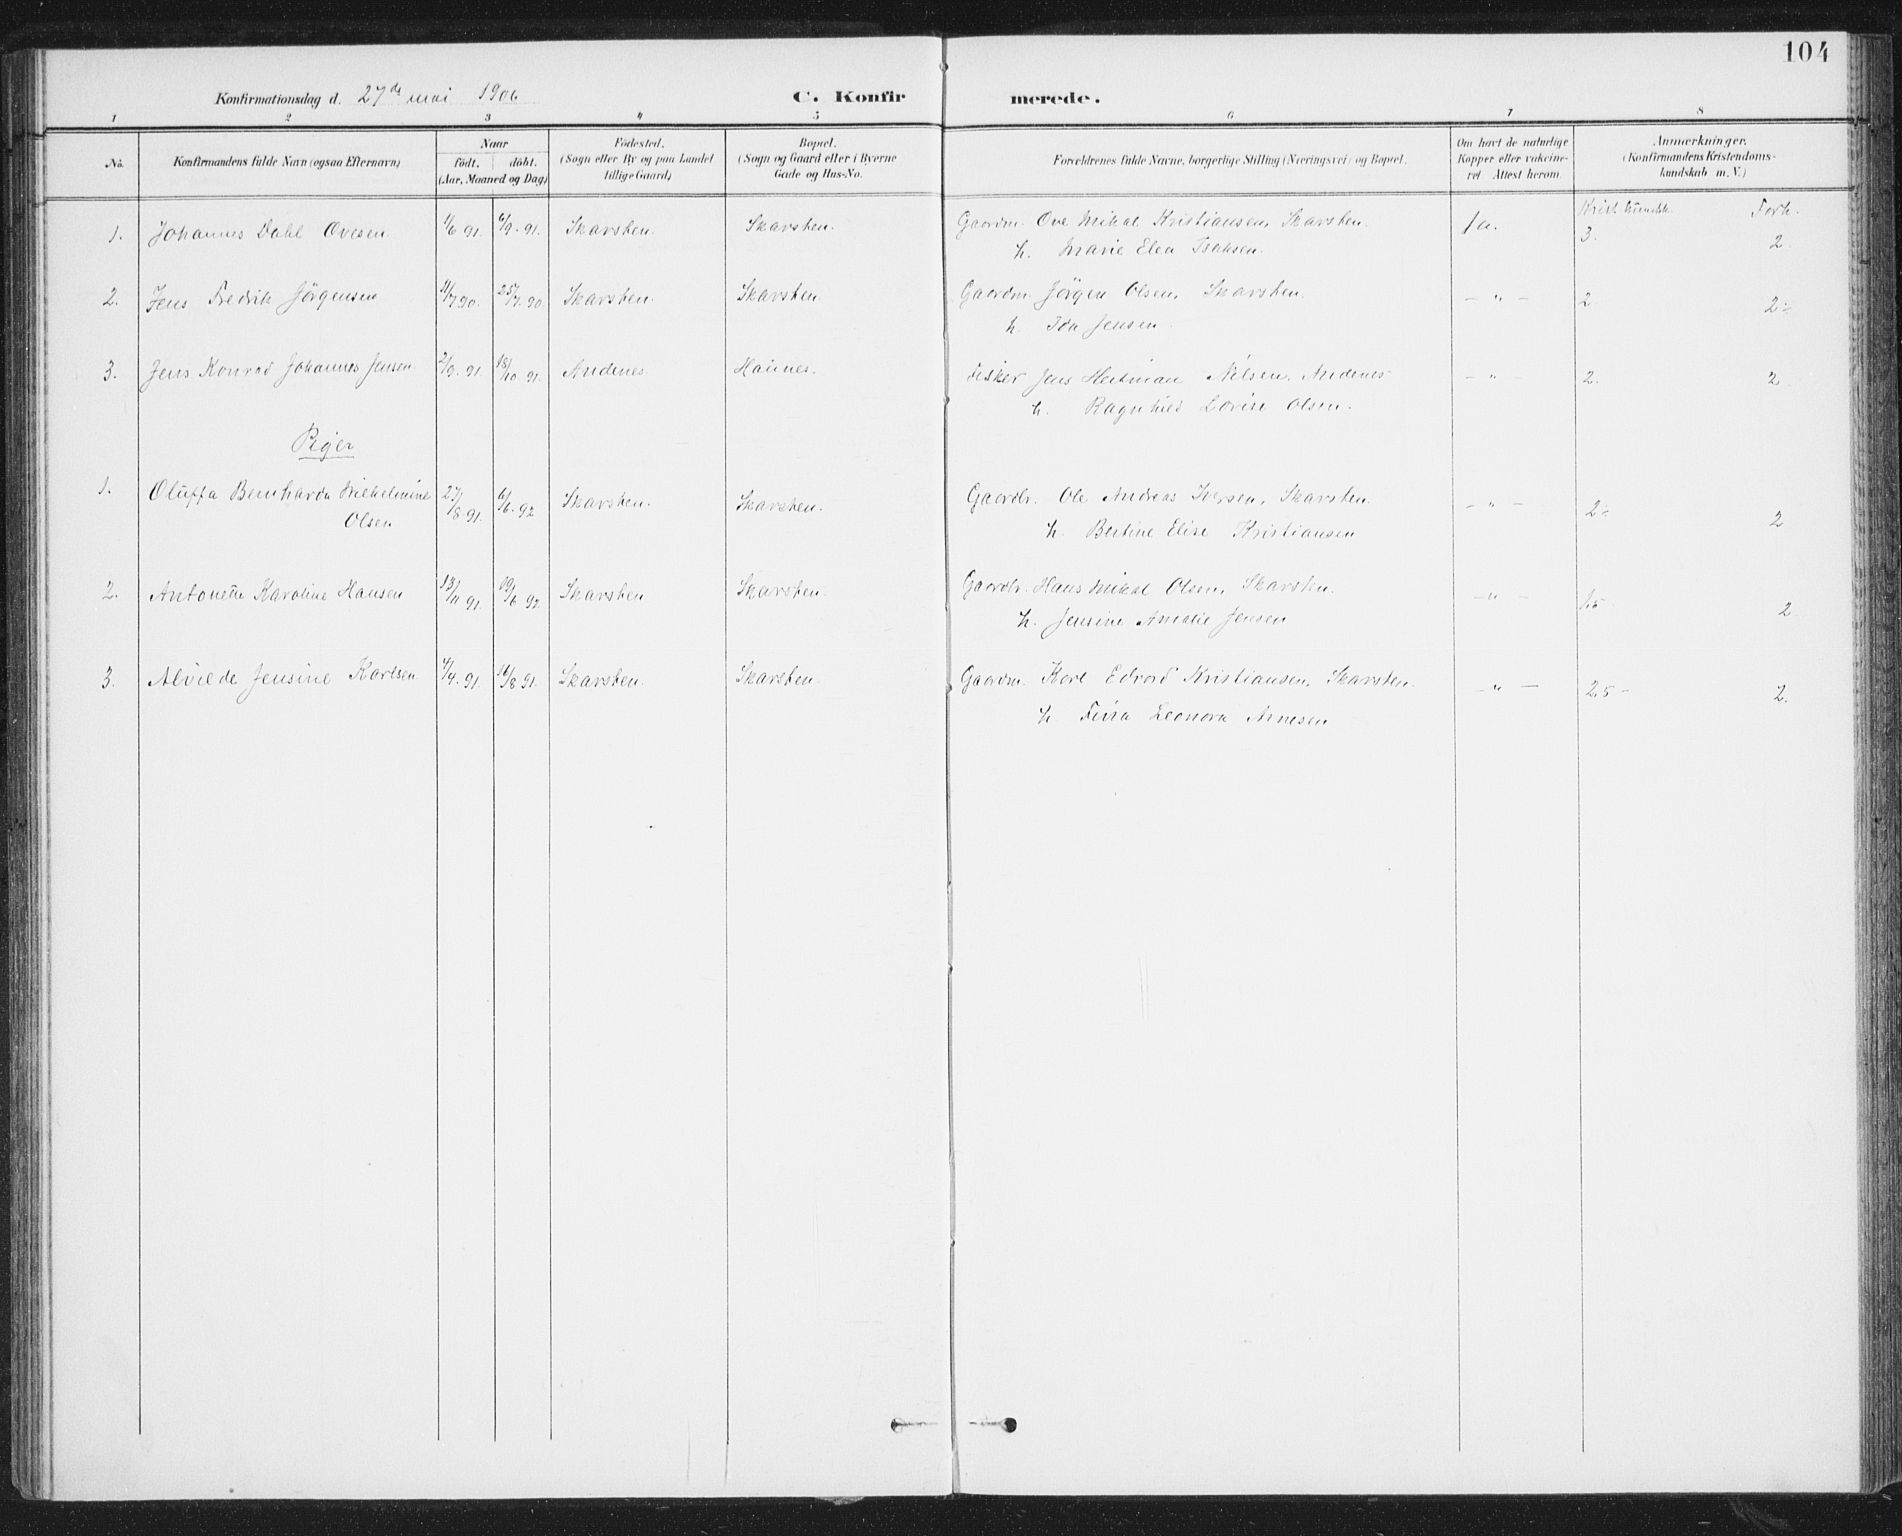 104
Konfirmationsdag d. 27de mai 1906 C. Konfir merede.
1 2 3 4 5 6 7 8
No. Konfirmandens fulde Navn (ogsaa Efternavn)
Naar
födt. döbt.
(Aar, Maaned og Dag)
Födested.
(Sogn eller By og paa Landet
tillige Gaard)
Bopæl.
(Sogn og Gaard eller i Byerne
Gade og Hus-No.
Forældrenes fulde Navne, borgerlige Stilling (Næringsvei) og Bopæl.
Om havt de naturlige
Kopper eller vakcine-
ret Attest herom.
Anmærkninger.
(Konfirmandens Kristendoms-
kundskab m. V.)
Krist. kundsk. Forh.
1. Johannes Dahl Ovesen 1/6 91. 6/9. 91. Skarsten. Skarsten. Gaardm. Ove Mikal Kristiansen, Skarsten. Ja. 3. 2.
h. Marie Elea Isaksen.
2. Jens Fredrik Jörgensen 11/7 90. 25/7. 90. Skarsten. Skarsten. Gaardm. Jörgen Olsen, Skarsten. – " – 2 2 ÷
h. Ida Jensen.
3. Jens Konrad Johannes Jensen 2/9. 91. 18/10 91. Andenes Haines. Fisker Jens Heitman Nilsen, Andenes – " – 2. 2.
h. Ragnhild Lovise Olsen.
Piger
1. Oluffa Bernharda Wilhelmine 27/8. 91. 6/6. 92 Skarsten. Skarsten. Gaardbr. Ole Andreas Iversen, Skarsten. – " – 2 ÷ 2
Olsen h. Bertine Elise Kristiansen
2. Antonette Karoline Hansen 13/11 91. 19/6 92. Skarsten Skarsten. Gaardbr. Hans Mikal Olsen, Skarsten. – " – 1.5 2
h. Jensine Amalie Jensen
3. Alvilde Jensine Karlsen 4/4. 91. 16/8 91. Skarsten. Skarsten. Gaardm. Karl Edvard Kristiansen, Skarsten. – " – 2.5 – 2.
h Leonora Arnesen